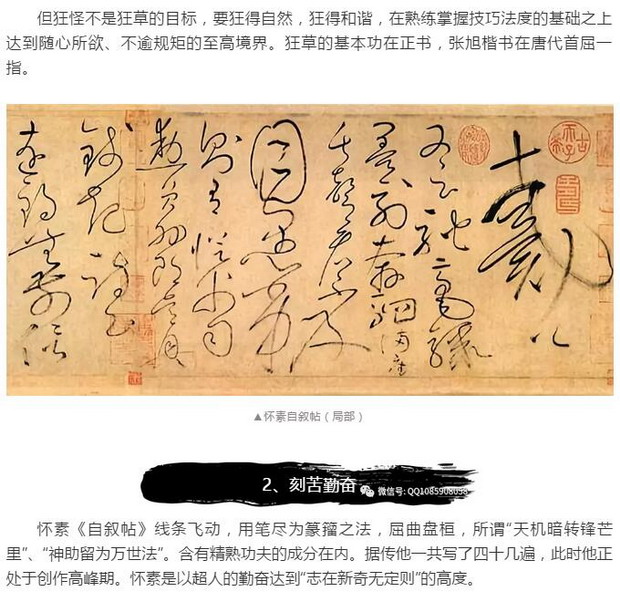 但狂怪不是狂草的目标，要狂得自然，狂得和谐，在熟练掌握技巧法度的基础之上
达到随心所欲、不逾规矩的至高境界。狂草的基本功在正书，张旭楷书在唐代首屈一
指。
古希天子
戴公
又云馳毫驟
墨列奔駟滿座
失聲看不及
目愚劣
則有從父司
勳員外郎吳興
錢起詩云
遠錫無前侶
▲怀素自叙帖（局部）
2、刻苦勤奋
微信号: QQ1085908058
怀素《自叙帖》线条飞动，用笔尽为篆籀之法，屈曲盘桓，所谓“天机暗转锋芒
里”、“神助留为万世法”。含有精熟功夫的成分在内。据传他一共写了四十几遍，此时他正
处于创作高峰期。怀素是以超人的勤奋达到“志在新奇无定则”的高度。